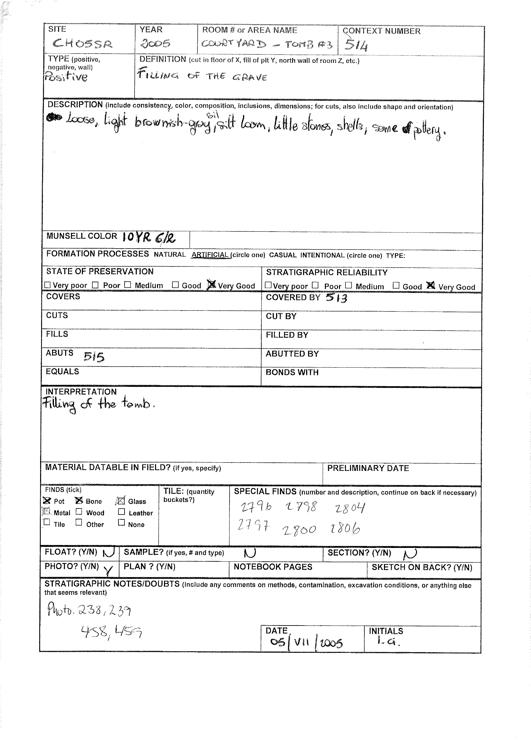 SITE YEAR ROOM # or AREA NAME CONTEXT NUMBER
CHOSSR 2005 COURTYARD - TOMB #3 514
TYPE (positive, negative, wall) DEFINITION (cut in floor of X, fill of pit Y, north wall of room Z, etc.)
Positive FILLING OF THE GRAVE
DESCRIPTION (include consistency, color, composition, inclusions, dimensions; for cuts, also include shape and orientation)
Loose, light brownish-gray, silt loam, little stones, shells, some pottery.
MUNSELL COLOR 10YR 6/2
FORMATION PROCESSES NATURAL ARTIFICIAL (circle one) CASUAL INTENTIONAL (circle one) TYPE:
STATE OF PRESERVATION STRATIGRAPHIC RELIABILITY
Very poor Poor Medium Good Very Good Very poor Poor Medium Good Very Good
COVERS COVERED BY 513
CUTS CUT BY
FILLS FILLED BY
ABUTS 515 ABUTTED BY
EQUALS BONDS WITH
INTERPRETATION
Filling of the tomb.
MATERIAL DATABLE IN FIELD? (if yes, specify) PRELIMINARY DATE
FINDS (tick) TILE: (quantity buckets?) SPECIAL FINDS (number and description, continue on back if necessary)
Pot Bone Glass 2796 2798 2804
Metal Wood Leather 2797 2800 2806
Tile Other None
FLOAT? (Y/N) N SAMPLE? (if yes, # and type) N SECTION? (Y/N) N
PHOTO? (Y/N) Y PLAN ? (Y/N) NOTEBOOK PAGES SKETCH ON BACK? (Y/N)
STRATIGRAPHIC NOTES/DOUBTS (Include any comments on methods, contamination, excavation conditions, or anything else
that seems relevant)
Photo. 238, 239
458, 459
DATE INITIALS
05/VII/2005 I.G.